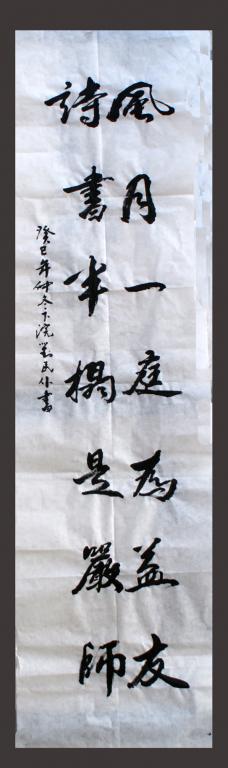 風月一庭為益友
詩書半榻是嚴師
癸巳年仲冬